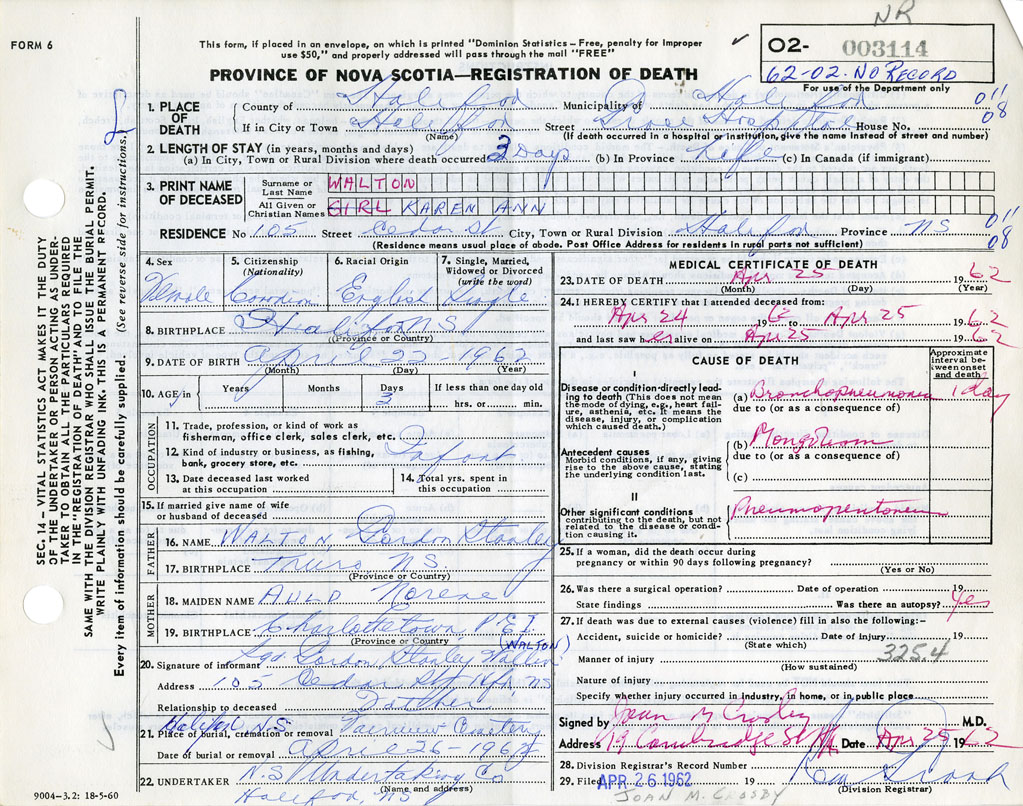 NR
FORM 6
This form, if placed in an envelope, on which is printed "Dominion Statistics – Free, penalty for improper
use $50," and properly addressed will pass through the mail "FREE"
✓ O2- 003114
62-02. NO RECORD
For use of the Department only
PROVINCE OF NOVA SCOTIA—REGISTRATION OF DEATH
1. PLACE OF DEATH
County of Halifax Municipality of Halifax 011
If in City or Town Halifax (Name) Street Grace Hospital House No. 08
(If death occurred in a hospital or institution, give the name instead of street and number)
2. LENGTH OF STAY (in years, months and days)
(a) In City, Town or Rural Division where death occurred 3 Days (b) In Province Life (c) In Canada (if immigrant)
3. PRINT NAME OF DECEASED
Surname or Last Name WALTON
All Given or Christian Names GIRL KAREN ANN
RESIDENCE No 105 Street Cedar St City, Town or Rural Division Halifax Province NS 011
08
(Residence means usual place of abode. Post Office Address for residents in rural parts not sufficient)
4. Sex 5. Citizenship (Nationality) 6. Racial Origin 7. Single, Married, Widowed or Divorced (write the word)
Female Canadian English Single
8. BIRTHPLACE Halifax NS
(Province or Country)
9. DATE OF BIRTH April 22 - 1962
(Month) (Day) (Year)
10. AGE in Years Months Days 3 If less than one day old
hrs. or min.
OCCUPATION
11. Trade, profession, or kind of work as
fisherman, office clerk, sales clerk, etc.
12. Kind of industry or business, as fishing,
bank, grocery store, etc. Infant
13. Date deceased last worked
at this occupation
14. Total yrs. spent in
this occupation
15. If married give name of wife
or husband of deceased
FATHER
16. NAME WALTON Gordon Stanley
17. BIRTHPLACE Truro NS.
(Province or Country)
MOTHER
18. MAIDEN NAME AULD Norene
19. BIRTHPLACE Charlottetown, P.E.I.
(Province or Country)
(WALTON)
20. Signature of informant Sgd Gordon Stanley Walton
Address 105 Cedar St Hfx NS
Relationship to deceased Father
Halifax N.S.
21. Place of burial, cremation or removal Fairview Cemetery
Date of burial or removal April 26 - 1962
22. UNDERTAKER N.S. Undertaking Co
(Name and address)
Halifax, NS
9004-3.2: 18-5-60
MEDICAL CERTIFICATE OF DEATH
23. DATE OF DEATH Apr 25 1962
(Month) (Day) (Year)
24. I HEREBY CERTIFY that I attended deceased from:
Apr 24 1962 to Apr 25 1962
and last saw her alive on Apr 25 1962
CAUSE OF DEATH
Approximate interval between onset and death
I
Disease or condition directly leading to death (This does not mean
the mode of dying, e.g., heart failure, asthenia, etc. It means the
disease, injury, or complication which caused death.)
(a) Bronchopneumonia 1 day
due to (or as a consequence of)
Antecedent causes
Morbid conditions, if any, giving
rise to the above cause, stating
the underlying condition last.
(b) Mongolism
due to (or as a consequence of)
(c)
II
Other significant conditions
contributing to the death, but not
related to the disease or condition causing it.
Pneumoperitoneum
25. If a woman, did the death occur during
pregnancy or within 90 days following pregnancy?
(Yes or No)
26. Was there a surgical operation? Date of operation 19
State findings Was there an autopsy? Yes
27. If death was due to external causes (violence) fill in also the following:–
Accident, suicide or homicide? Date of injury 19
(State which)
Manner of injury 325.4
(How sustained)
Nature of injury
Specify whether injury occurred in industry, in home, or in public place
Signed by Joan M Crosby M.D.
Address 19 Cambridge St Hfx Date Apr 29 1962
28. Division Registrar's Record Number
29. Filed APR 26 1962
(Division Registrar)
JOAN M. CROSBY
SEC. 14 – VITAL STATISTICS ACT MAKES IT THE DUTY
OF THE UNDERTAKER OR PERSON ACTING AS UNDERTAKER TO OBTAIN ALL THE PARTICULARS REQUIRED
IN THE "REGISTRATION OF DEATH" AND TO FILE THE
SAME WITH THE DIVISION REGISTRAR WHO SHALL ISSUE THE BURIAL PERMIT.
WRITE PLAINLY WITH UNFADING INK. THIS IS A PERMANENT RECORD.
Every item of information should be carefully supplied. (See reverse side for instructions.)